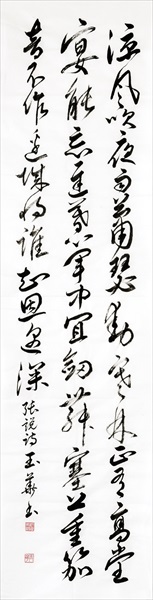 凉风吹夜雨萧瑟动寒林正有高堂
宴能忘迟暮心军中宜剑舞塞上重笳
音不作边城将谁知恩遇深
张说诗玉华书